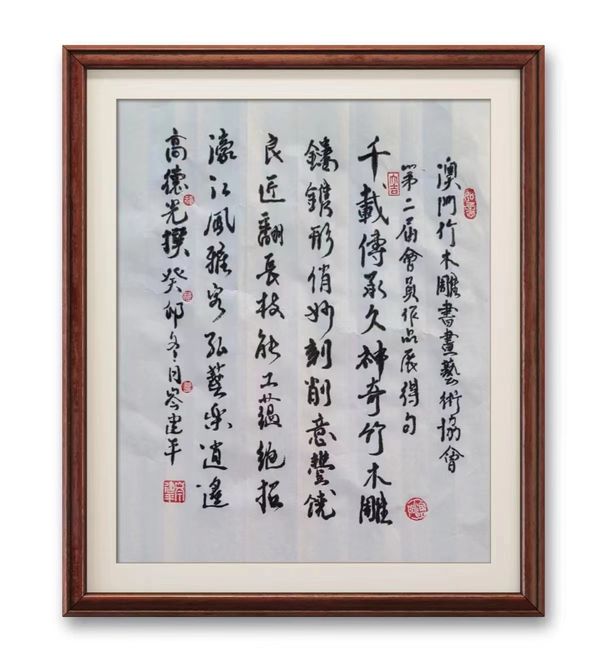 澳門竹木雕書畫藝術協會
第二屆會員作品展得句
千載傳承久神奇竹木雕
鑄鐫形俏妙刻削意豐饒
良匠翻長技能工蘊絕招
濠江風雅客弘藝樂逍遙
高德光撰癸卯冬月岑建平